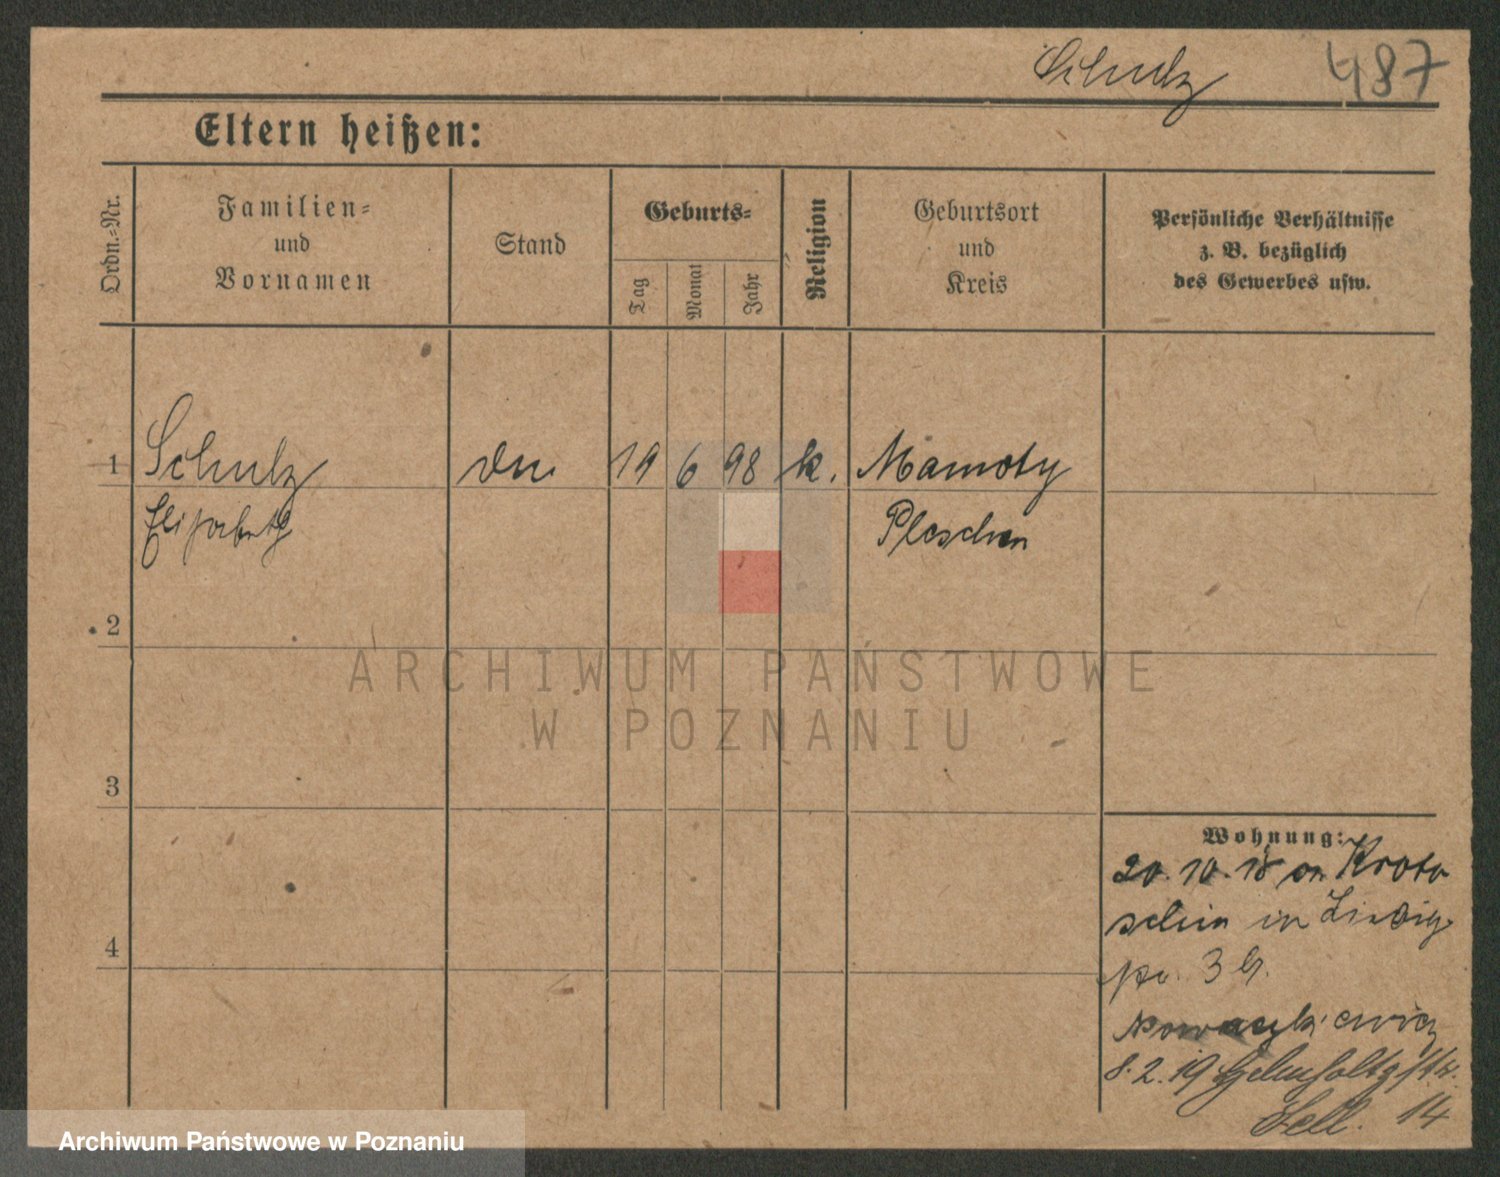 Schulz 487
Eltern heißen:
Ordn.-Nr.
Familien-
und
Vornamen
Stand
Geburts-
Tag
Monat
Jahr
Religion
Geburtsort
und
Kreis
Persönliche Verhältnisse
z. B. bezüglich
des Gewerbes usw.
1 Schulz 19 6 98 k. Mamoty
Elisabeth Pleschen
2
ARCHIWUM PAŃSTWOWE
W POZNANIU
3
Wohnung:
20.10.18 on Kroto
schin in
3 b.
Nowaczkiewicz
8.2.19 Helmholtzstr.
14
4
Archiwum Państwowe w Poznaniu